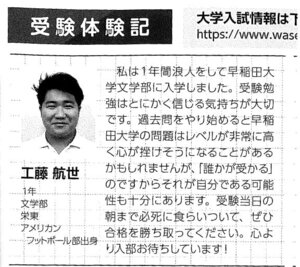 受験体験記
大学入試情報は下
https://www.wase
私は1年間浪人をして早稲田大
学文学部に入学しました。受験勉
強はとにかく信じる気持ちが大切
です。過去問をやり始めると早稲
田大学の問題はレベルが非常に高
く心が挫けそうになることがある
かもしれませんが、「誰かが受かる」
のですからそれが自分である可能
性も十分にあります。受験当日の
朝まで必死に食らいついて、ぜひ
合格を勝ち取ってください。心よ
り入部お待ちしています!
工藤 航世
1年
文学部
栄東
アメリカン
フットボール部出身